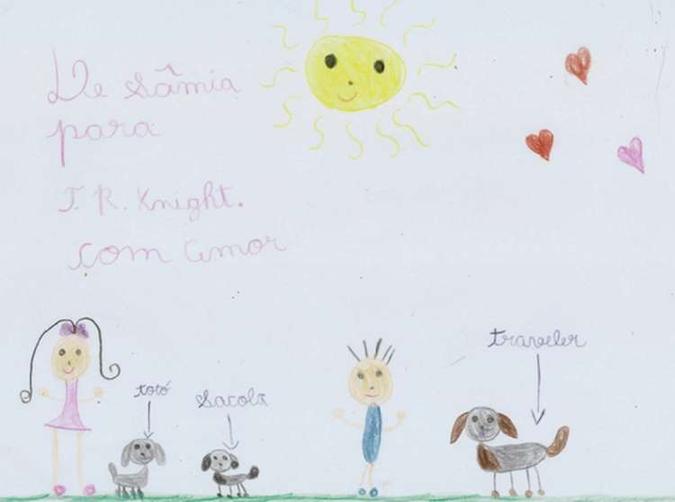 De Sâmia
para
T. R. Knight.
com Amor
traveler
totó
Sacola